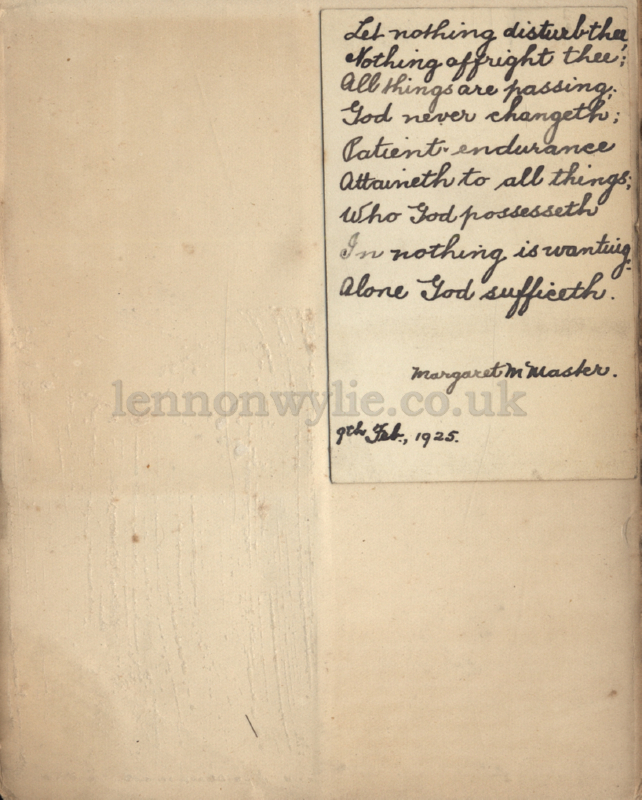 Let nothing disturb thee
Nothing affright thee;
All things are passing;
God never changeth;
Patient endurance
Attaineth to all things;
Who God possesseth
In nothing is wanting.
Alone God sufficeth.
Margaret McMaster.
lennonwylie.co.uk
9th Feb., 1925.